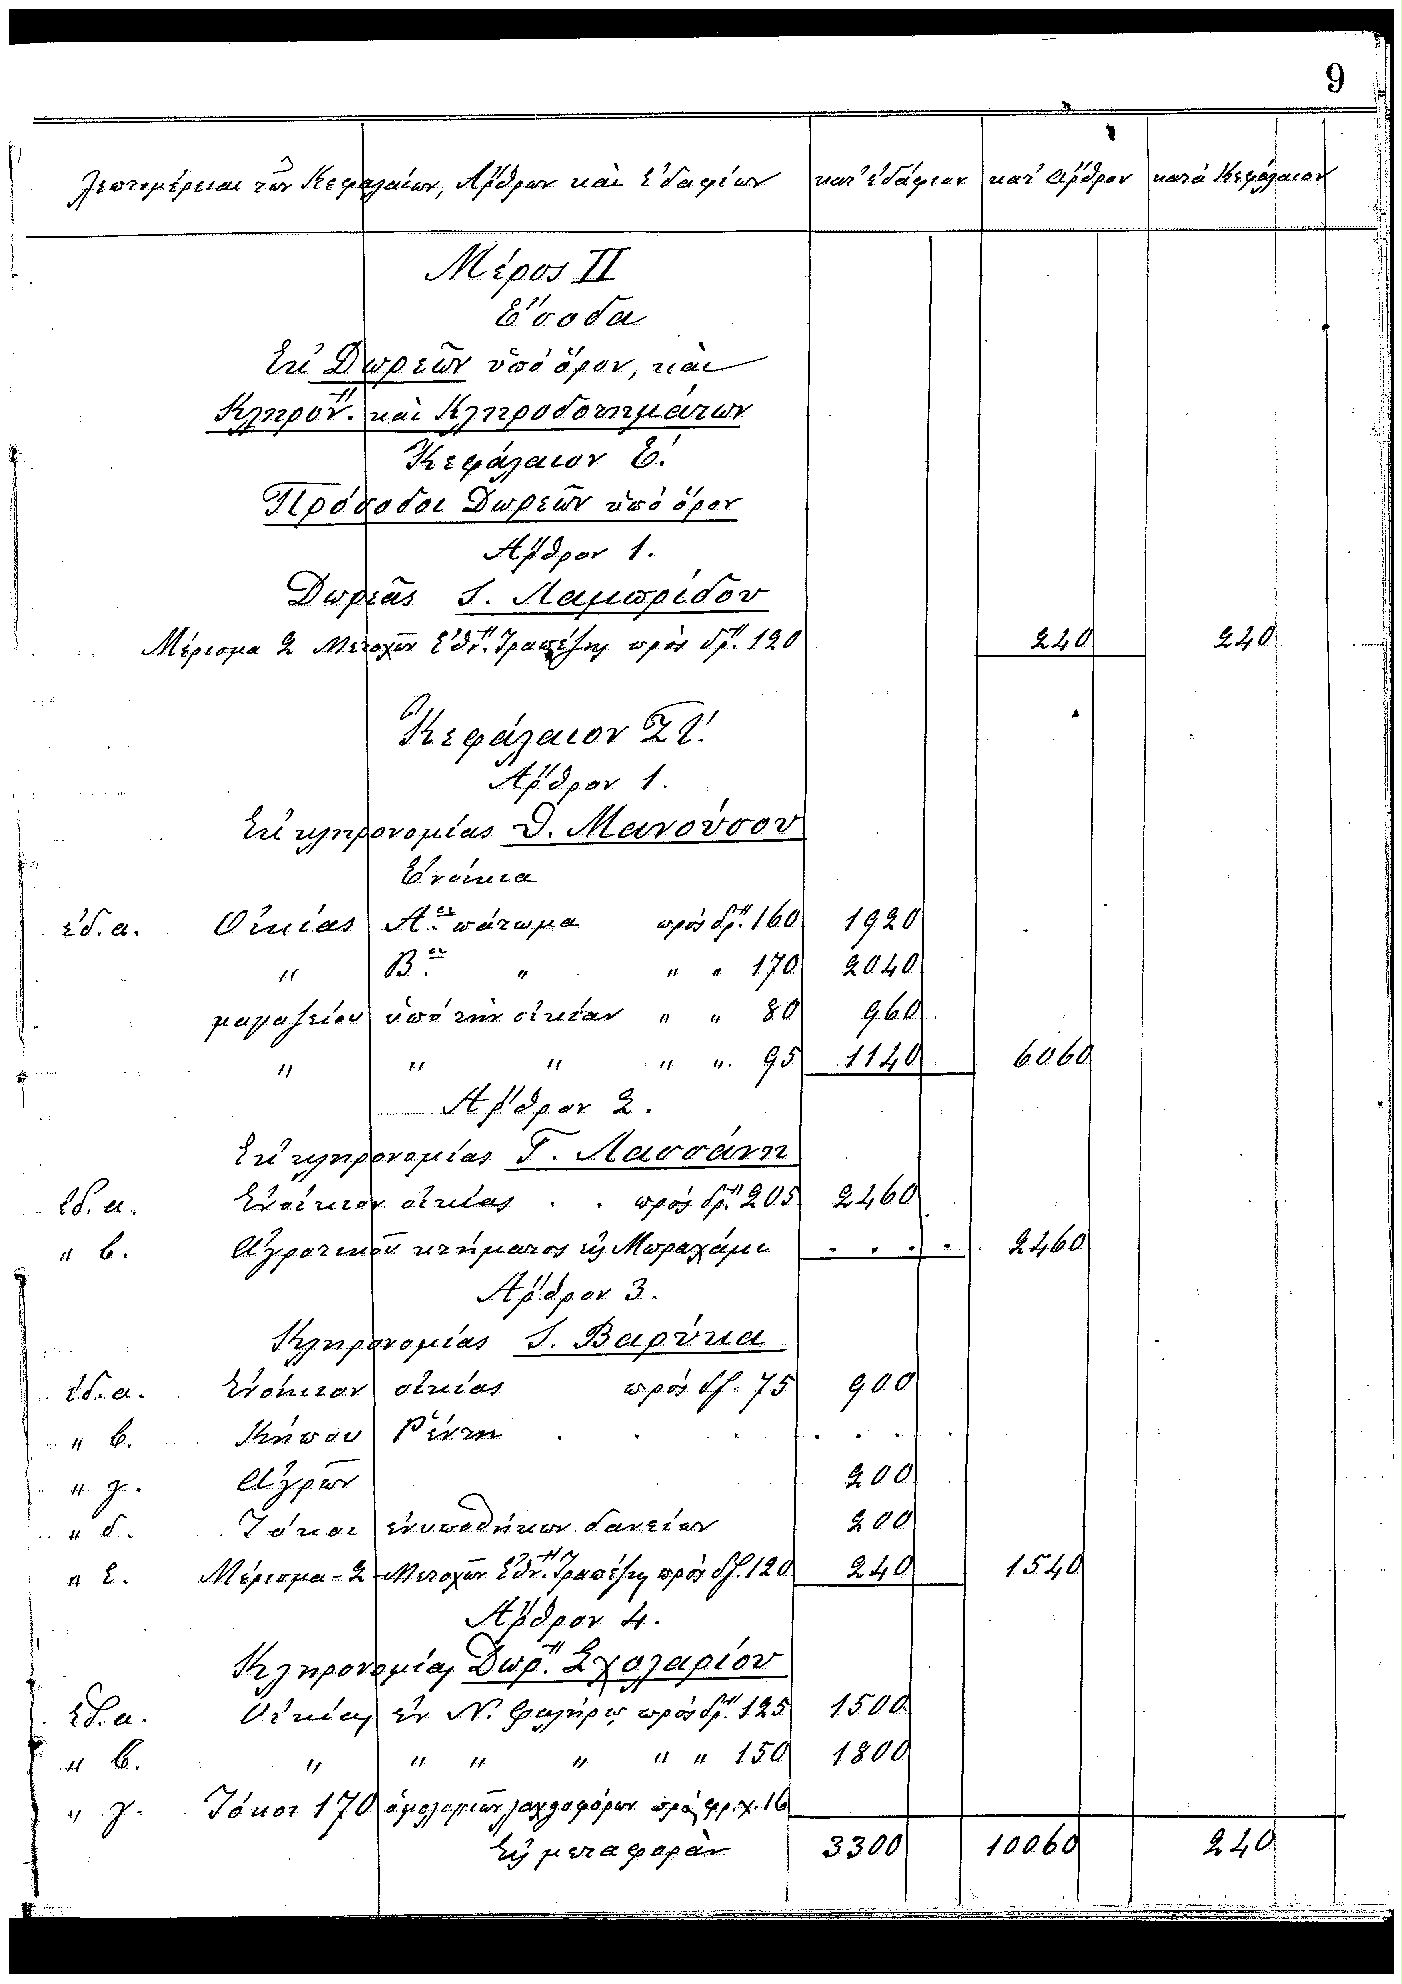 9
Λεπτομέρειαι τῶν Κεφαλαίων, Ἄρθρων καὶ Ἐδαφίων κατ' ἐδάφιον κατ' ἄρθρον κατὰ Κεφάλαιον
Μέρος II
Ἔσοδα
Ἐκ Δωρεῶν ὑπὸ ὅρον, καὶ
Κληρον. καὶ Κληροδοτημάτων
Κεφάλαιον Ε'.
Πρόσοδοι Δωρεῶν ὑπὸ ὅρον
Ἄρθρον 1.
Δωρεᾶς Ι. Λαμπρίδου
Μέρισμα 2 Μετοχῶν Ἐθν. Τραπέζης πρὸς δρ. 120 240 240
Κεφάλαιον ΣΤ'.
Ἄρθρον 1.
Ἐκ κληρονομίας Θ. Μανούσου
Ἐνοίκια
ἐδ. α. Οἰκίας Α.ον πάτωμα πρὸς δρ. 160 1920
" Β.ον " " " 170 2040
μαγαζείου ὑπὸ τὴν οἰκίαν " " 80 960
" " " " " 95 1140 6060
Ἄρθρον 2.
Ἐκ κληρονομίας Γ. Λασσάνη
ἐδ. α. Ἐνοίκιον οἰκίας . . πρὸς δρ. 205 2460
" β. Ἀγροτικοῦ κτήματος εἰς Μπραχάμι . . . . 2460
Ἄρθρον 3.
Κληρονομίας Ι. Βαρύκα
ἐδ. α. Ἐνοίκιον οἰκίας πρὸς δρ. 75 900
" β. Κήπου Ρέντη . . . . . . .
" γ. Ἀγρῶν 200
" δ. Τόκοι ἐνυποθήκων δανείων 200
" ε. Μέρισμα - 2 Μετοχῶν Ἐθν. Τραπέζης πρὸς δρ. 120 240 1540
Ἄρθρον 4.
Κληρονομίας Δωρ. Σχολαρίου
Ἐδ. α. Οἰκίας ἐν Ν. Φαλήρῳ πρὸς δρ. 125 1500
" β. " " " " " " 150 1800
" γ. Τόκοι 170 ὁμολογιῶν λαχειοφόρων πρὸς φρ. χ. 16
Εἰς μεταφορὰν 3300 10060 240